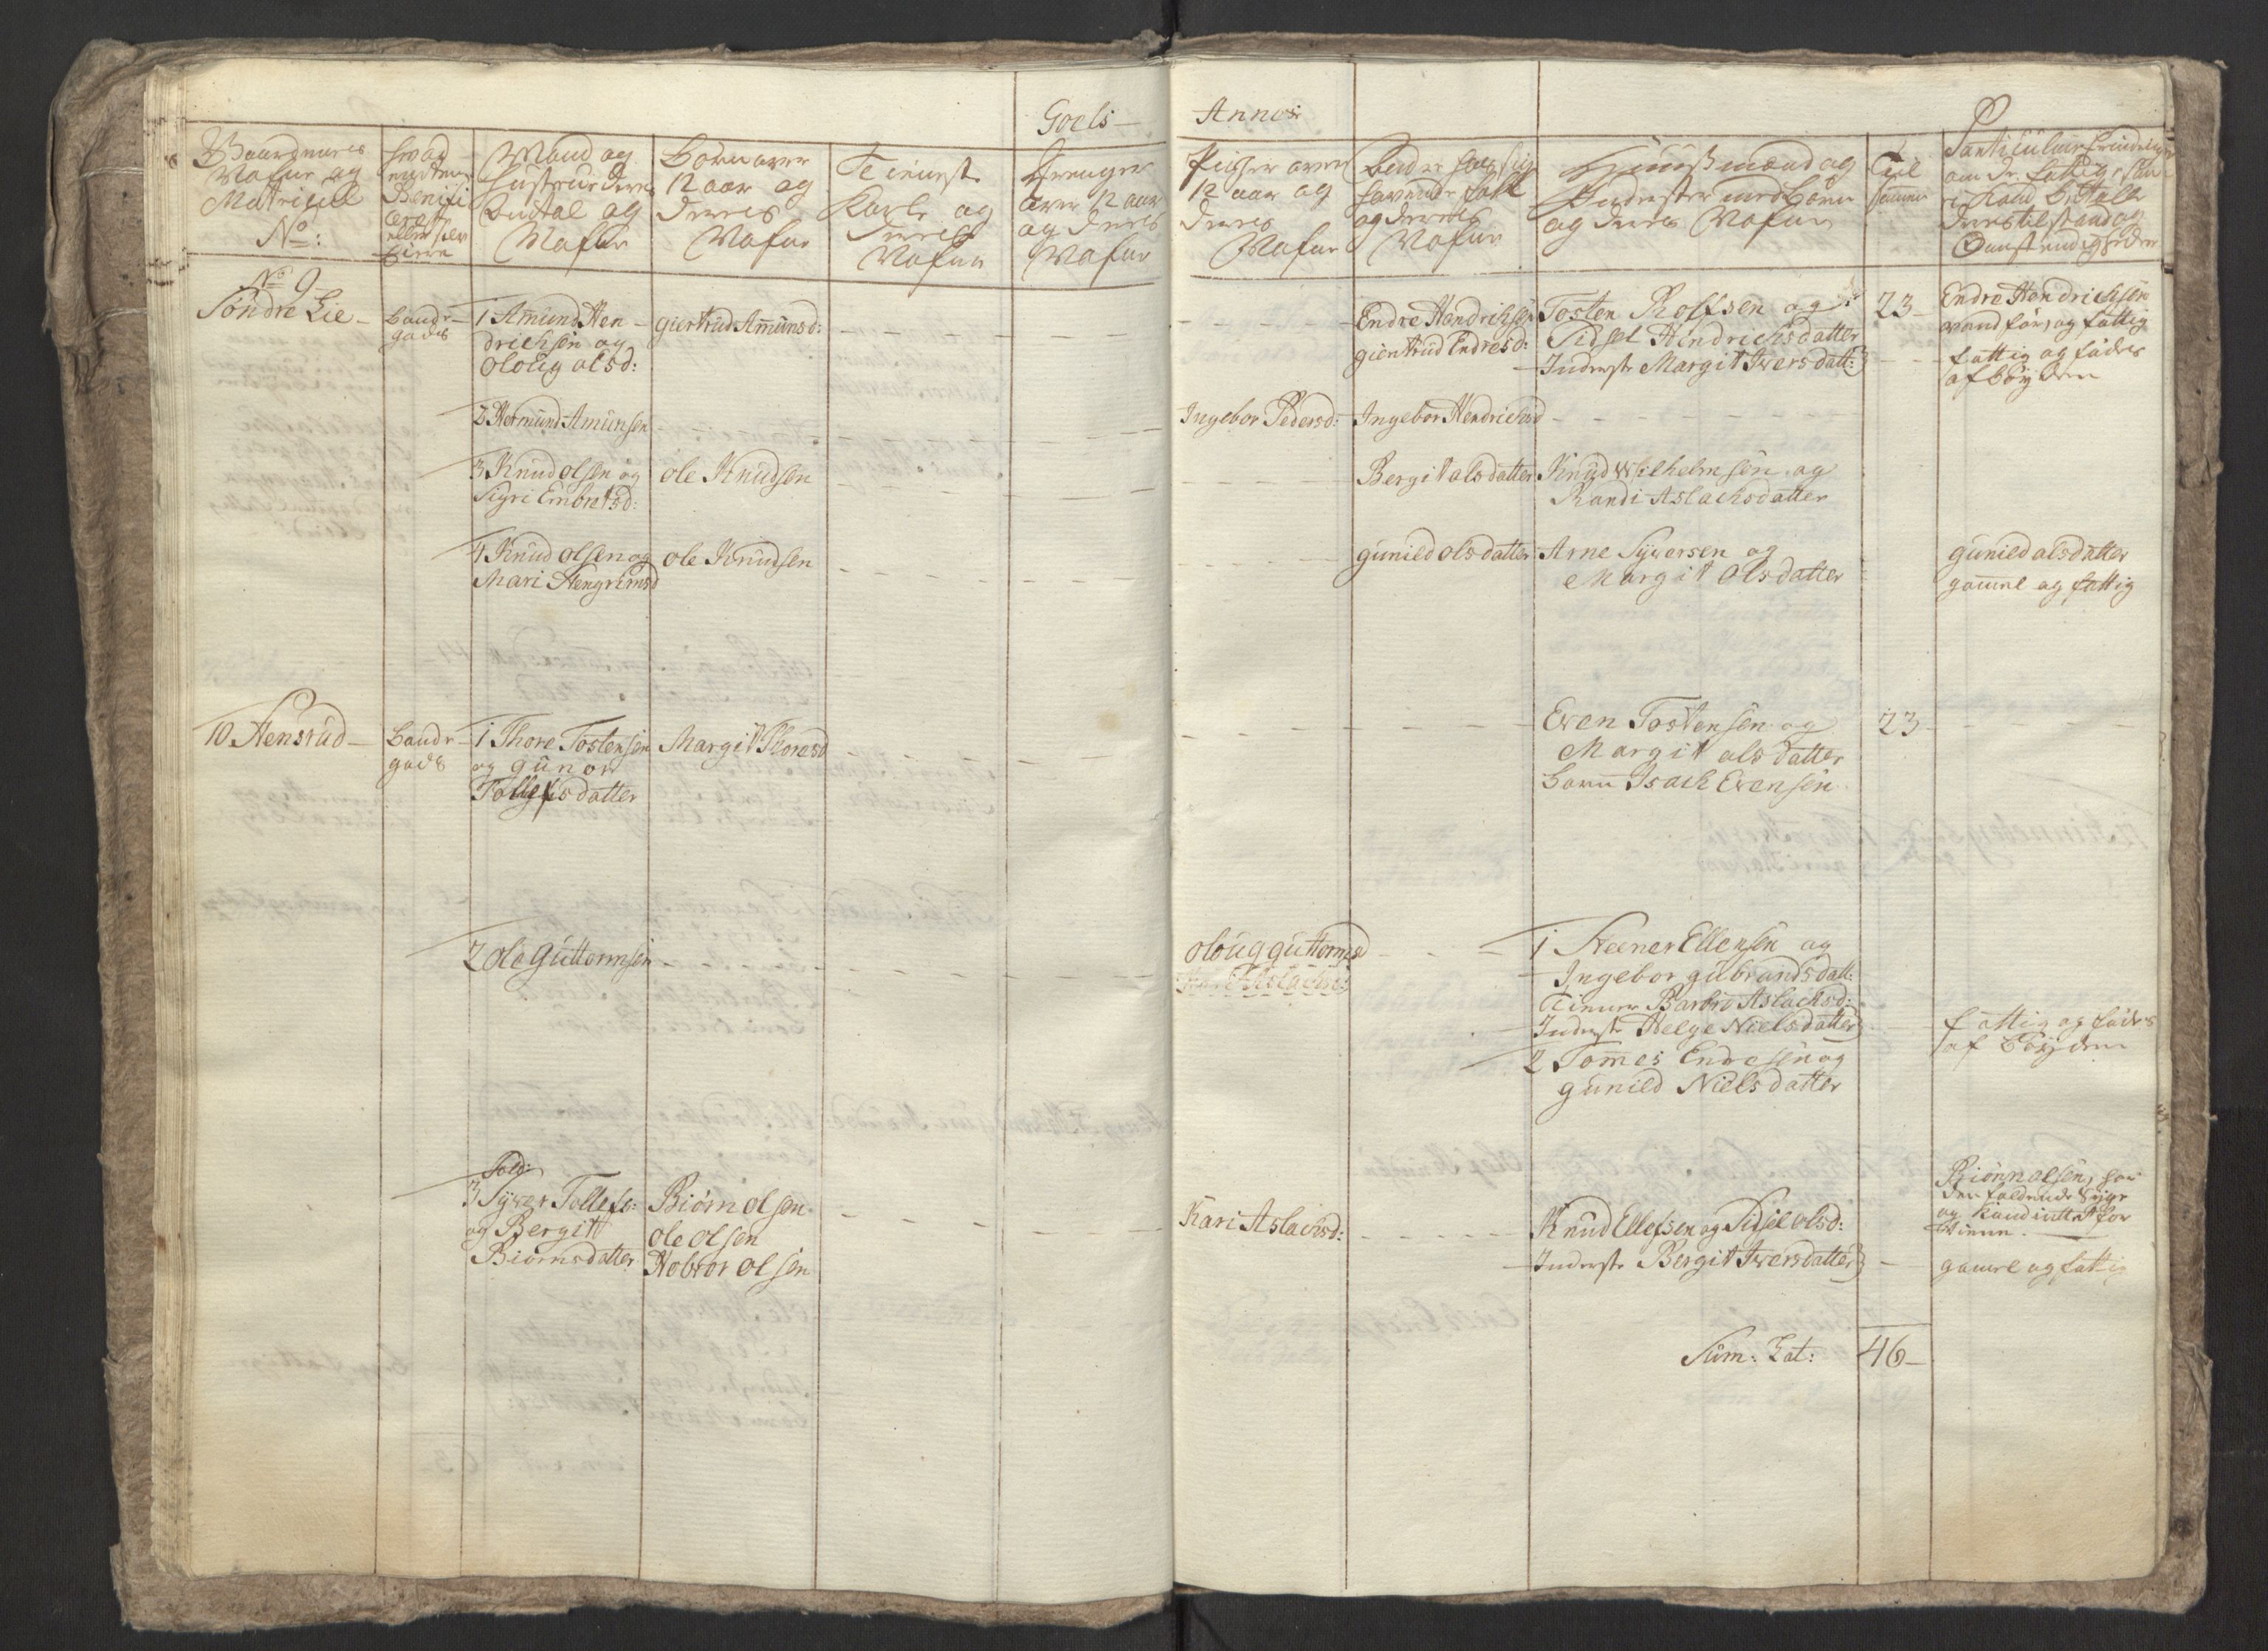 Goels
Annex
Gaardenes
Nafne og
Matricul
No:
hvad
enten
Benifi
ceret
eller selv
Eiere
Mand og
Hustrue deres
Antal og
Nafne
Børn over
12 aar og
deres
Nafne
Tieniste
Karle og
deres
Nafne
Drenger
over 12 aar
og deres
Nafne
Piiger over
12 aar og
deres
Nafne
og deres
Nafne
Huusmænd og
Inderster med børn
og deres Nafne
Tal
Summa
Particulair
om de fattige
deres tilstand og
Omstændigheder
No 9
Søndre Lie
Bonde
gods
1 Amund Hen
drichsen og
Oloug olsd:
giertrud Amunsd:
Endre Hendrichsen
gientrud Endresd:
Tosten Rolfsen og
Sidsel Hendrichsdatter
Inderste Margit Iversdatt:
23
Endre Hendrichsen
vanfør, og fattig
fattig og fødes
af bøyden
2 Hermund Amunsen
Ingebor Pedersd:
Ingebor Hendrichsd
3 Knud olsen og
Sigri Embretsd:
ole Knudsen
Bergit alsdatter
Knud Wilhelmsen og
Randi Aslachsdatter
4 Knud olsen og
Mari Hengrimsd
ole Knudsen
gunild olsdatter
Arne Syversen og
Margit olsdatter
gunild alsdatter
gamel og fattig
10 Stensrud
Bonde
gods
1 Thore Tostensen
og gunor
Tollefsdatter
Margit Thoresd
Even Tostensen og
Margit als datter
barn Isach Evensen
23
2 ole guttormsen
oloug guttormsd
Kari Aslachsd
1 Steener Ellensen og
Ingebor gulbrandsdatt:
tiener Barbro Aslachsd:
Inderste Helge Nielsdatter
2 Tomes Endresen og
gunild Nielsdatter
fattig og fødes
af bøyden
Sold:
3 Syver Tollefs:
og Bergit
Biørnsdatter
Biørn olsen
ole olsen
Hobror olsen
Kari Aslachsd:
Knud Ellefsen og Sidsel olsd:
Inderste Bergit Iversdatter
Biørn olsen, har
den faldende Syge
og kand intet for
tiene.
gamel og fattig
Sum: Lat: 46